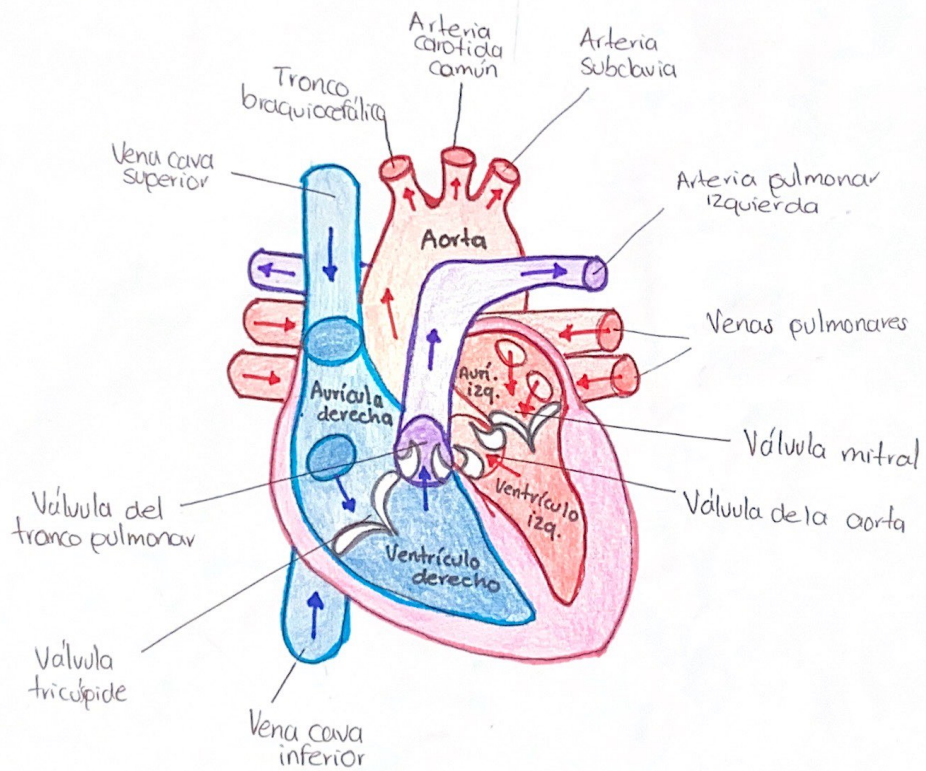 Arteria
carotida
común
Arteria
subclavia
Tronco
braquiocefálico
Vena cava
superior
Arteria pulmonar
izquierda
Aorta
Venas pulmonares
Aurí.
izq.
Aurícula
derecha
Válvula mitral
Válvula de la aorta
Ventrículo
izq.
Válvula del
tronco pulmonar
Ventrículo
derecho
Válvula
tricúspide
Vena cava
inferior